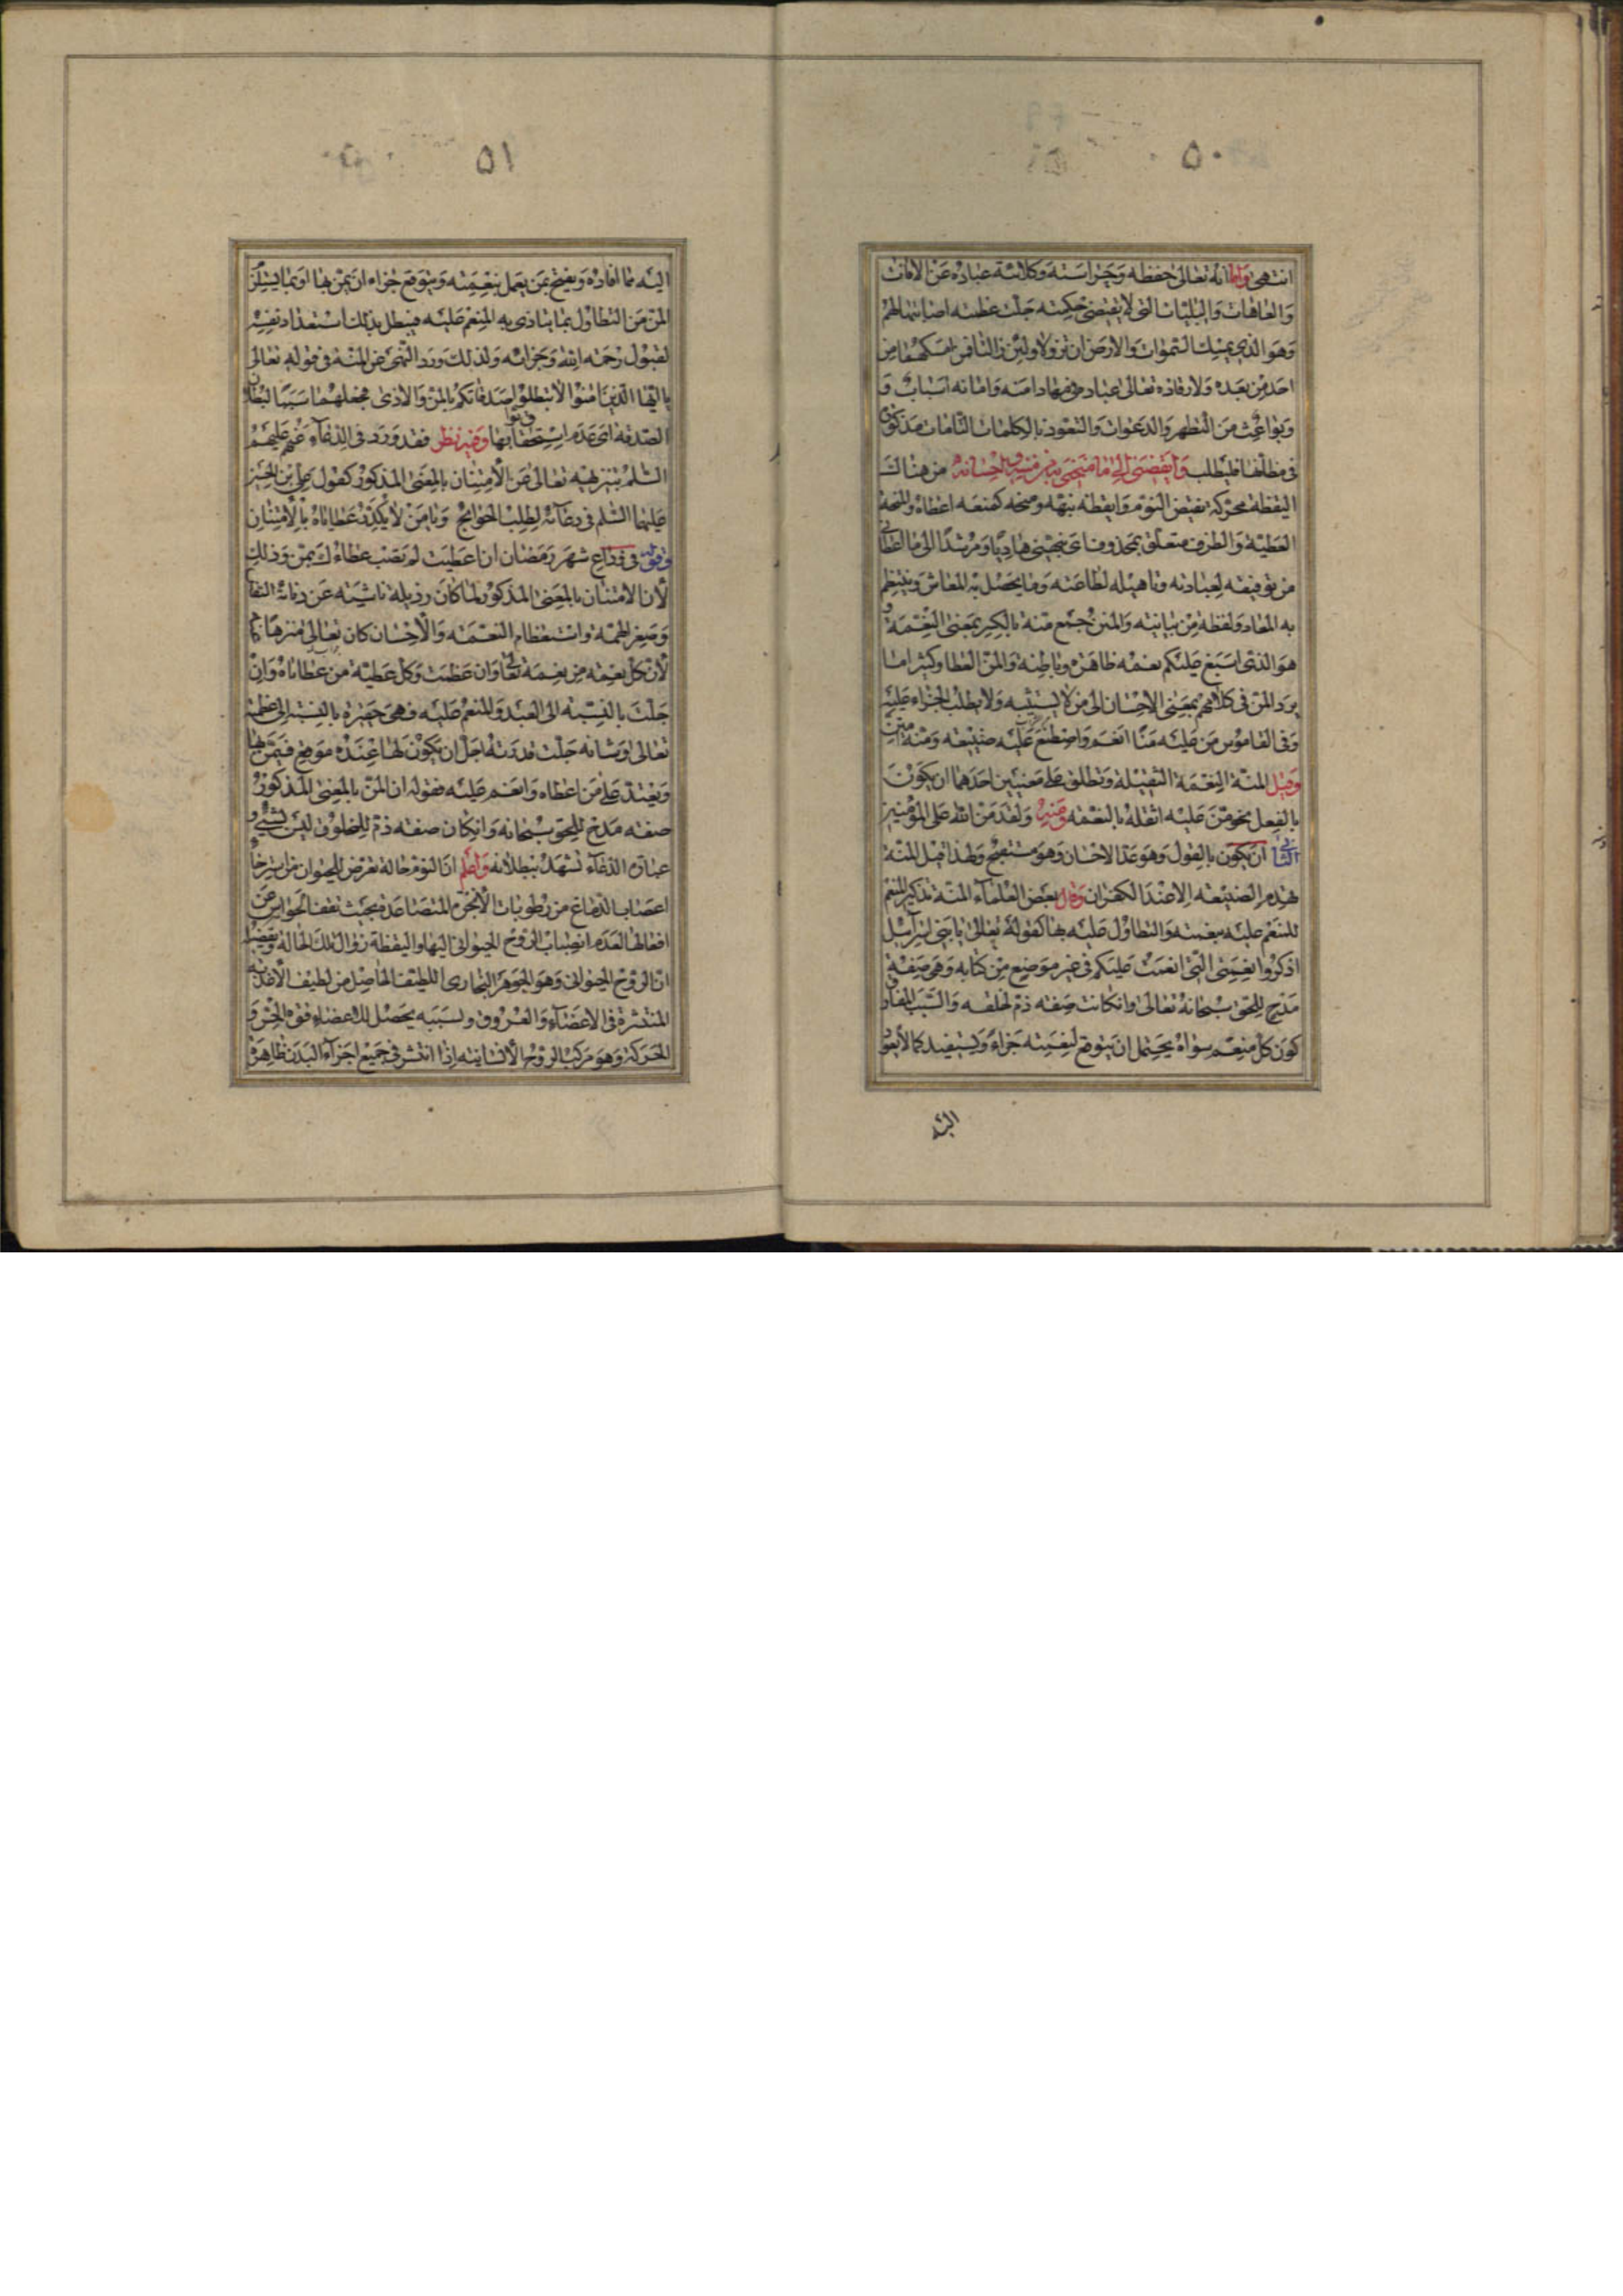 ٥٠
انتهى واما انه تعالى حفظه وحراسته وكلائته عباده عن الافات
والعاهات والبليات التى لا يقتضى حكمته جلت عظمته اصابتها لهم
وهو الذى يمسك السموات والارض ان تزولا ولئن زالتا فمن امسكهما من
احد من بعده ولارقاده تعالى عباده فى مهاد امنه وامانه اسباب و
وبواعث من التطهر والدعوات والتعوذ بالكلمات التامات مذكورة
فى مظانها فليطلب وايقضنى الى ما منحنى به من مننه واحسانه من هناك
اليقظة محركة نقيض النوم وايقظه نبهه ومنحه كمنعه اعطاه والمنحة
العطية والظرف متعلق بمحذوف اى نبهنى هاديا ومرشدا الى ما اعطانى
من توفيقه لعبادته وتاهيله لطاعته وما يحصل به المعاش وينتظم
به المعاد ولفظة من بيانيه والمنن جمع منه بالكسر بمعنى النعمة و
هو الذى اسبغ عليكم نعمه ظاهرة وباطنة والمن العطا وكثيرا ما
يرد المن فى كلامهم بمعنى الاحسان الى من لا يستثيبه ولا يطلب الجزاء عليه
وفى القاموس من عليه منا انعم واصطنع عليه صنيعه ومنه
وقيل المنة النعمة الثقيلة وتطلق على معنيين احدهما ان يكون
بالفعل نحو من عليه اثقله بالنعمه ومنه ولقد من الله على المؤمنين
الثانى ان يكون بالقول وهو عد الاحسان وهو مستقبح ولهذا قيل المنة
تهدم الصنيعه الا عند الكفران وقال بعض العلماء المنة تذكير المنعم
للمنعم عليه بنعمته والتطاول عليه بها كقوله تعالى يا بنى اسرآئيل
اذكروا نعمتى التى انعمت عليكم فى غير موضع من كتابه وهى صفة
مدح للحق سبحانه تعالى وان كانت صفه ذم لخلقه والسبب الفارق
كون كل منعم سواه يحتمل ان يتوقع لنعمته جزاء ويستفيد كمالا يعود
اليه
٥١
اليه مما افاده ويقبح ممن يعمل بنعمته ويتوقع جزاء ان يمن بها او بما يستلزم
المن من التطاول بما يتاذى به المنعم عليه فيبطل بذلك استعداد نفسه
لقبول رحمه الله وجزائه ولذلك ورد النهى عن المنة فى قوله تعالى
يا ايها الذين امنوا لا تبطلوا صدقاتكم بالمن والاذى فجعلهما سببا لبطلان
الصدقه اى عدم استحقاق ثوابها وفيه نظر فقد ورد فى الدعاء عنهم عليهم
السلم بتنزيهه تعالى عن الامتنان بالمعنى المذكور كقول على بن الحسين
عليهما السلم فى دعآئه لطلب الحوائج ويا من لا يكدر عطاياه بالامتنان
وقوله فى وداع شهر رمضان ان اعطيت لم تشب عطاءك بمن وذلك
لأن الامتنان بالمعنى المذكور لما كان رذيلة ناشيه عن دنائة النفس
وصغر الهمة واستعظام النعمة والاحسان كان تعالى منزها
لأن كل نعمه من نعمه تعالى وان عظمت وكل عطية من عطاياه وان
جلت بالنسبه الى العبد والمنعم عليه فهى حقيرة بالنسبه الى عظمته
تعالى وشانه جلت قدرته اجل ان يكون لها عنده موقع فيمن بها
ويعتد على من اعطاه وانعم عليه فقوله ان المن بالمعنى المذكور
صفه مدح للحق سبحانه وان كان صفه ذم للمخلوق ليس بشئ و
عبارة الدعاء تشهد ببطلانه واعلم ان النوم حالة تعرض للحيوان من استرخاء
اعصاب الدماغ من رطوبات الابخره المتصاعدة بحيث تقف الحواس عن
افعالها لعدم انصباب الروح الحيوانى اليها واليقظة زوال تلك الحالة
ان الروح الحيوانى وهو الجوهر البخارى اللطيف الحاصل من لطيف الأغذية
المنتشرة فى الاعضآء والعروق وبسببه يحصل للاعضاء قوه الحس و
الحركة وهو مركب الروح الانسانيه اذا انتشر فى جميع اجزآء البدن ظاهره